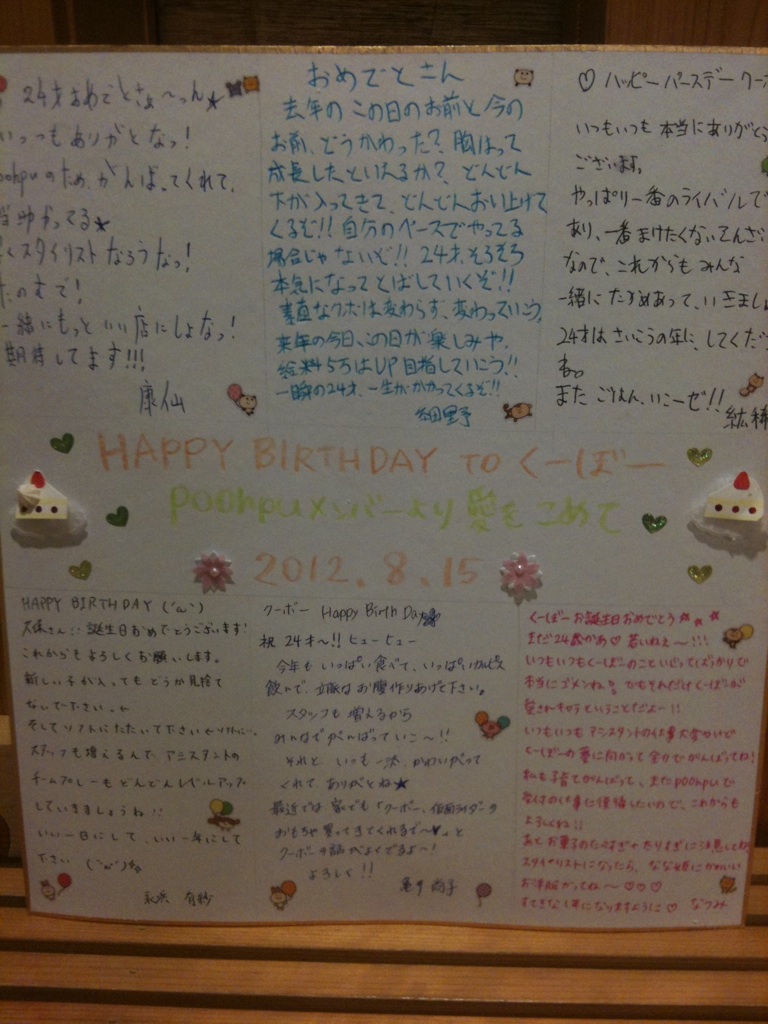 24才おめでとさぁ〜ん★
いっつもありがとなっ!
poohpuのため、がんばってくれて、
助かってる★
スタイリストなろうなっ!
たのむで!
一緒にもっといい店にしよなっ!
期待してます!!!
康仙
おめでとさん
去年のこの日のお前と今の
お前、どうかわった?胸はって
成長したといえるか?どんどん
下が入ってきて、どんどんおい上げて
くるぞ!!自分のペースでやってる
場合じゃないぞ!!24才、そろそろ
本気になってとばしていくぞ!!
素直なクボは変わらず、変わっていこう。
来年の今日、この日が楽しみや。
給料5万はUP目指していこう!!
一瞬の24才、一生かかってくるぞ!!
♡ハッピーバースデークー
いつもいつも本当にありがとう
ございます。
やっぱり一番のライバルで
あり、一番まけたくないてんさい
なので、これからもみんな
一緒にたかめあって、いきましょ
24才はさいこうの年に、してくださ
ね。
またごはん、いこーぜ!!
HAPPY BIRTHDAY TO くーぼー
poohpuメンバーより愛をこめて
2012.8.15
HAPPY BIRTHDAY ('ω')
久保さん!!誕生日おめでとうございます!
これからもよろしくお願いします。
新しい子が入ってもどうか見捨て
ないで下さい。
そしてソフトにたたいて下さい
スタッフも増えるんで、アシスタントの
チームプレーもどんどんレベルアップ
していきましょうね!!
いい一日にして、いい一年にして
下さい('ω')
クーボー Happy Birth Day
祝24才〜!!ヒューヒュー
今年もいっぱい食べて、いっぱいカルピス
飲んで、立派なお腹作りあげて下さい。
スタッフも増えるから
みんなでがんばっていこ〜!!
それと、いつも一汰、かわいがって
くれて、ありがとね★
最近では、家でも「クーボー、仮面ライダーの
おもちゃ買ってきてくれるで〜♥」と
クーボーの話がよくでるよ〜!
よろしく!!
くーぼーお誕生日おめでとう☆☆☆
まだ24歳かぁ♡若いねぇ〜!!!
いつもいつもくーぼーのこといじってばっかりで
本当にゴメンね。でもそれだけくーぼーが
愛されキャラということだよー!!
いつもいつもアシスタントの仕事大変やけど
くーぼーの夢に向かって全力でがんばってね!
私も子育てがんばって、またpoohpuで
受付の仕事に復帰したいので、これからも
よろしくね!!
あと、お菓子のたべすぎ+太りすぎに注意してね
スタイリストになったら、なな姫にかわいい
お洋服かってね〜♡♡♡
すてきな1年になりますように♡ なつみ